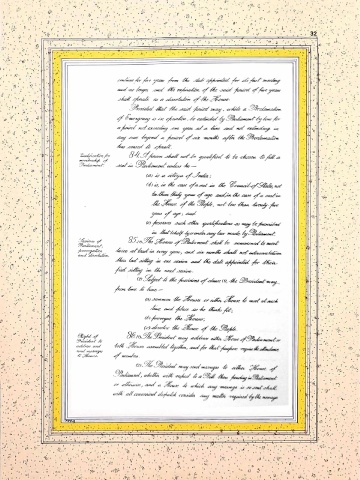 32
continue for five years from the date appointed for its first meeting
and no longer and the expiration of the said period of five years
shall operate as a dissolution of the House:
Provided that the said period may, while a Proclamation
of Emergency is in operation, be extended by Parliament by law for
a period not exceeding one year at a time and not extending in
any case beyond a period of six months after the Proclamation
has ceased to operate.
Qualification for
membership of
Parliament.
84. A person shall not be qualified to be chosen to fill a
seat in Parliament unless he —
(a) is a citizen of India;
(b) is, in the case of a seat in the Council of States, not
less than thirty years of age and, in the case of a seat in
the House of the People, not less than twenty-five
years of age; and
(c) possesses such other qualifications as may be prescribed
in that behalf by or under any law made by Parliament.
Sessions of
Parliament,
prorogation
and dissolution.
85. (1) The Houses of Parliament shall be summoned to meet
twice at least in every year, and six months shall not intervene between
their last sitting in one session and the date appointed for their
first sitting in the next session.
(2) Subject to the provisions of clause (1), the President may
from time to time —
(a) summon the Houses or either House to meet at such
time and place as he thinks fit;
(b) prorogue the Houses;
(c) dissolve the House of the People.
Right of
President to
address and
send messages
to Houses.
86. (1) The President may address either House of Parliament or
both Houses assembled together, and for that purpose require the attendance
of members.
(2) The President may send messages to either House of
Parliament, whether with respect to a Bill then pending in Parliament
or otherwise, and a House to which any message is so sent shall
with all convenient despatch consider any matter required by the message